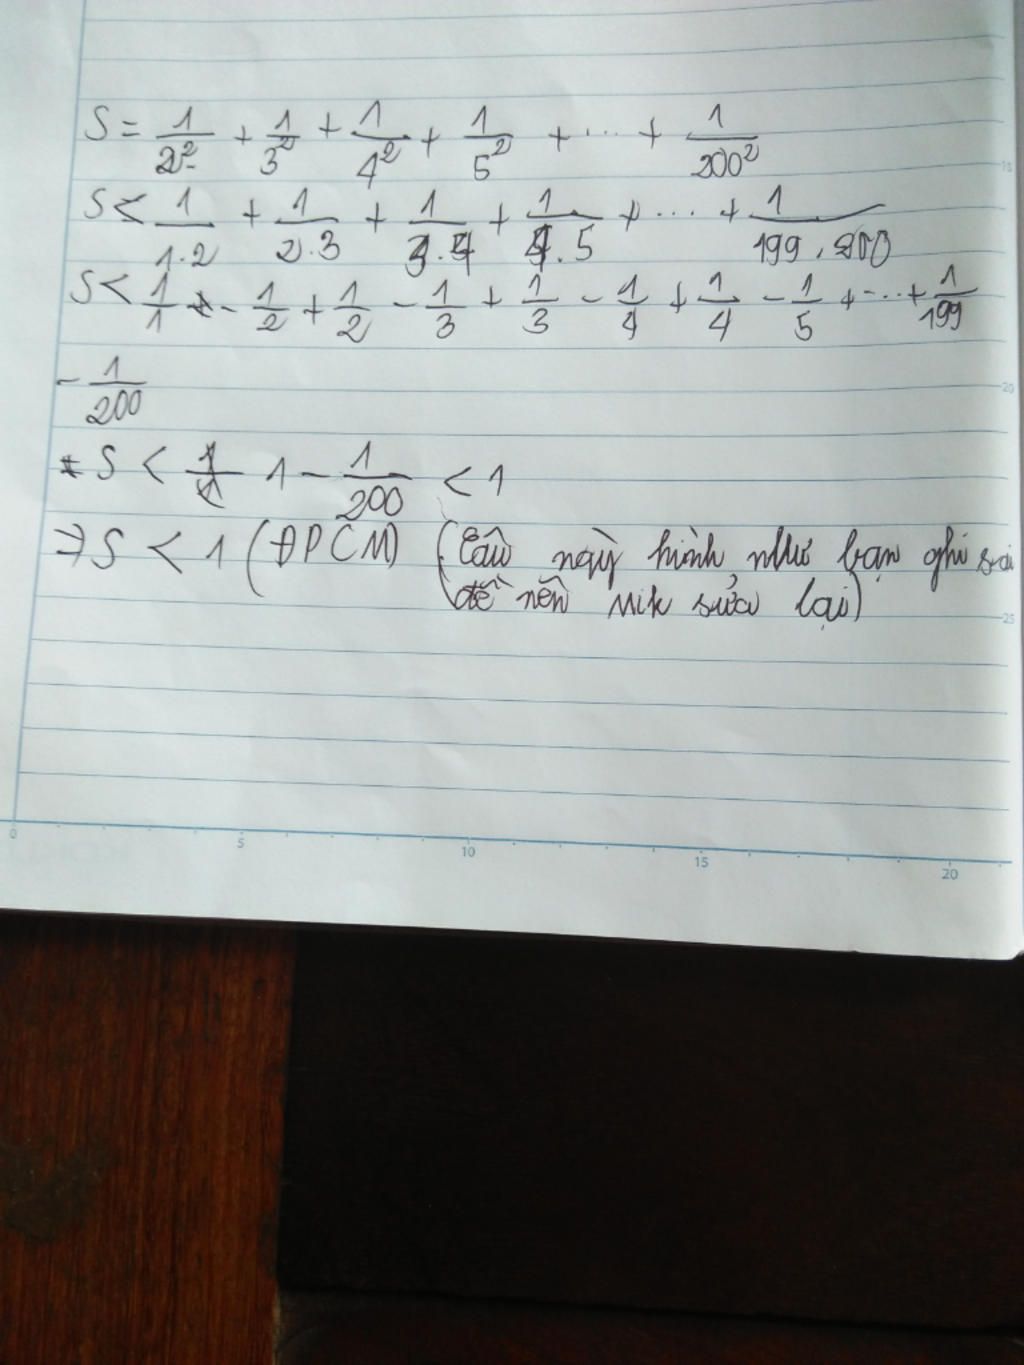 S = 1/2² + 1/3² + 1/4² + 1/5² + ... + 1/200²
S < 1/1.2 + 1/2.3 + 1/3.4 + 1/4.5 + ... + 1/199.200
S < 1/1 - 1/2 + 1/2 - 1/3 + 1/3 - 1/4 + 1/4 - 1/5 + ... + 1/199
- 1/200
S < 1 - 1/200 < 1
⇒ S < 1 (ĐPCM) (Câu này hình như bạn ghi sai
đề nên mik sửa lại)
0 5 10 15 20
15
20
25